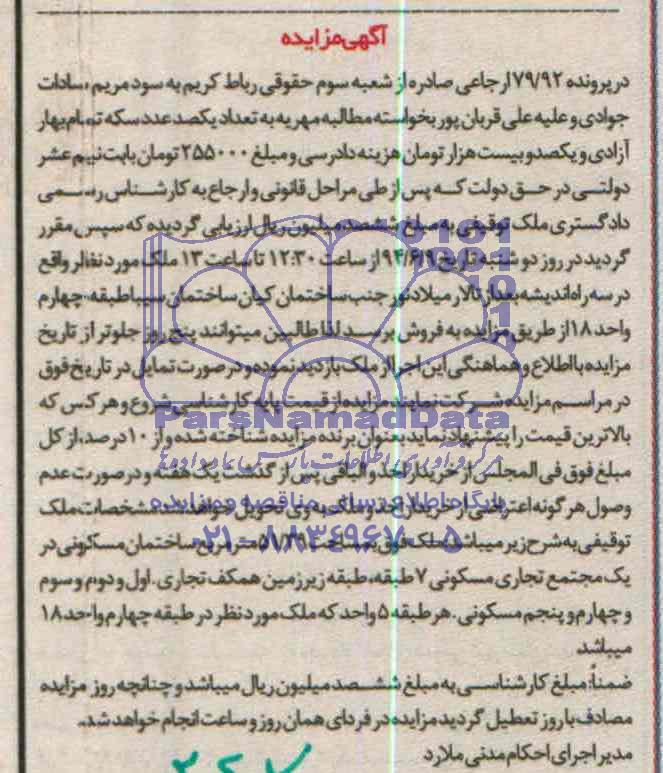 آگهی مزایده
در پرونده ۷۹/۹۲ ارجاعی صادره از شعبه سوم حقوقی رباط کریم به سود مریم سادات
جوادی و علیه علی قربان پور بخواسته مطالبه مهریه به تعداد یکصد عدد سکه تمام بهار
آزادی و یکصد و بیست هزار تومان هزینه دادرسی و مبلغ ۲۵۵۰۰۰ تومان بابت نیم عشر
دولتی در حق دولت که پس از طی مراحل قانونی و ارجاع به کارشناس رسمی
دادگستری ملک توقیفی به مبلغ ششصد میلیون ریال ارزیابی گردیده که سپس مقرر
گردید در روز دو شنبه تاریخ ۹۴/۶/۹ از ساعت ۱۲:۳۰ تا ساعت ۱۳ ملک مورد نظر واقع
در سه راه اندیشه بعد از تالار میلاد نور جنب ساختمان کیان ساختمان سیبا طبقه چهارم
واحد ۱۸ از طریق مزایده به فروش برسد لذا طالبین میتوانند پنج روز جلوتر از تاریخ
مزایده با اطلاع و هماهنگی این اجرا از ملک بازدید نموده و در صورت تمایل در تاریخ فوق
در مراسم مزایده شرکت نمایند مزایده از قیمت پایه کارشناسی شروع و هر کس که
ParsNamadData
بالاترین قیمت را پیشنهاد نماید بعنوان برنده مزایده شناخته شده و از ۱۰ درصد از کل
مبلغ فوق فی المجلس از خریدار اخذ و الباقی پس از گذشت یک هفته و در صورت عدم
وصول هر گونه اعتراضی از خریدار اخذ و ملک به وی تحویل خواهد شد مشخصات ملک
پایگاه اطلاع رسانی مناقصه و مزایده
توقیفی به شرح زیر میباشد ملک فوق به مساحت ۵۱/۳۹ متر مربع ساختمان مسکونی در
۰۲۱-۸۸۳۴۹۶۷۰-۵
یک مجتمع تجاری مسکونی ۷ طبقه، طبقه زیرزمین همکف تجاری. اول و دوم و سوم
و چهارم و پنجم مسکونی. هر طبقه ۵ واحد که ملک مورد نظر در طبقه چهارم واحد ۱۸
میباشد
ضمناً مبلغ کارشناسی به مبلغ ششصد میلیون ریال میباشد و چنانچه روز مزایده
مصادف با روز تعطیل گردید مزایده در فردای همان روز و ساعت انجام خواهد شد.
مدیر اجرای احکام مدنی ملارد